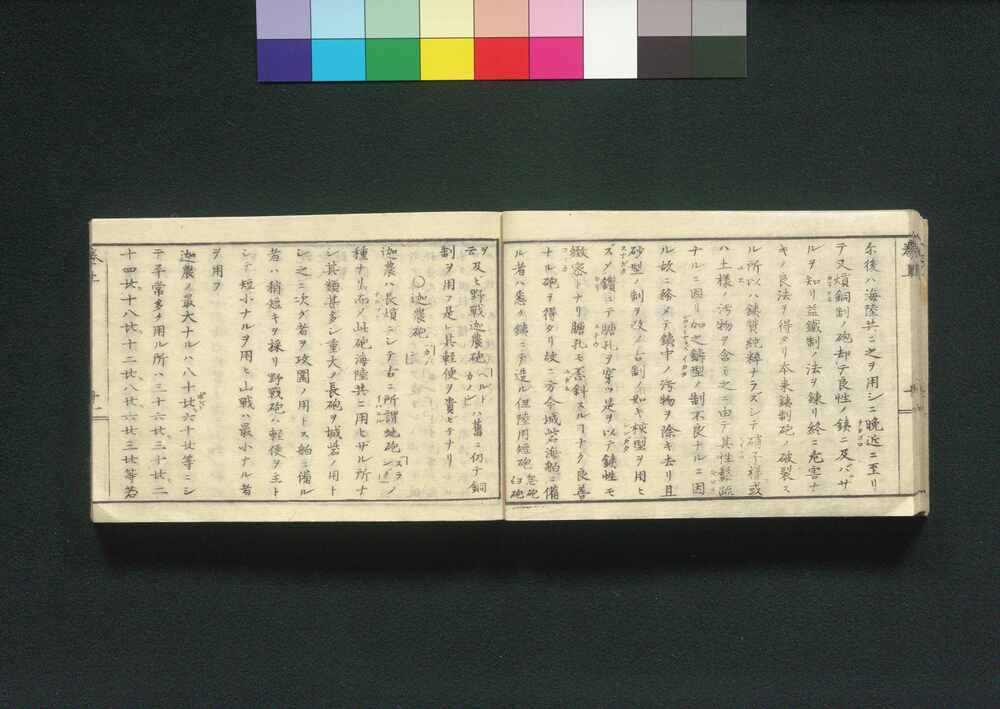 尓後ハ海陸共ニ之ヲ用シニ晩近ニ至リ
テ又熕銅制ノ砲却テ良性ノ銕ニ及バザ
ルヲ知リ益鐵制ノ法ヲ錬リ終ニ危害ナ
キノ良法ヲ得タリ本来銕制砲ノ破裂ス
ル所以ハ銕質純粋ナラズシテ硝子様或
ハ土様ノ汚物ヲ含ミ之ニ由テ其性鬆疏
ナルニ因リ加之鋳型ノ制不良ナルニ因
ル故ニ務メテ銕中ノ汚物ヲ除キ去リ且
砂型ノ制ヲ改メ古制ノ如キ模型ヲ用ヒ
ズメ鑽ニテ膅孔ヲ穿ツ是ヲ以テ銕性モ
緻密トナリ膅孔モ歪斜スルヿナク良善
ナル砲ヲ得タリ故ニ方今城砦海舶ニ備
ル者ハ悉ク銕ニテ造ル但陸用短砲 忽砲 臼砲
ヲ及ヒ野戦迦農砲 ハ舊ニ仍テ銅
制ヲ用フ是レ其軽便ヲ貴ヒナリ
○迦農砲
迦農ハ長熕ニシテ古ニ所謂地砲 ノ
種ナリ而メ此砲海陸共ニ用ヒザル所ナ
シ其類甚多シ重大ノ長砲ヲ城砦ノ用ト
シ之ニ次グ者ヲ攻圍ノ用トス舶ニ備ル
者ハ稍短キヲ採リ野戰砲ハ軽便ヲ主ト
シテ短小ナルヲ用ヒ山戰ハ最小ナル者
ヲ用フ
迦農ノ最大ナルハ八十廿六十廿等ニシ
テ平常多ク用ル所ハ三十六廿三十廿二
十四廿十八廿十二廿八廿六廿三廿等若